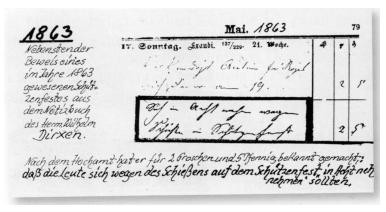 1863
Nebenstender
Beweis eines
im Jahre 1863
gewesenen Schüt-
zenfestes aus
dem Notizbuch
des Herrn Wilhelm
Dirxen.
Mai. 1863 79
17. Sonntag. Exaudi. 137/229. 21. Woche.
am 19. 2 5
in Acht
in Schützenfest 2 5
Nach dem Hochamt hat er für 2 Groschen und 5 Pfennig bekannt gemacht:
daß die Leute sich wegen des Schießens auf dem Schützenfest, in Acht neh
nehmen sollten.